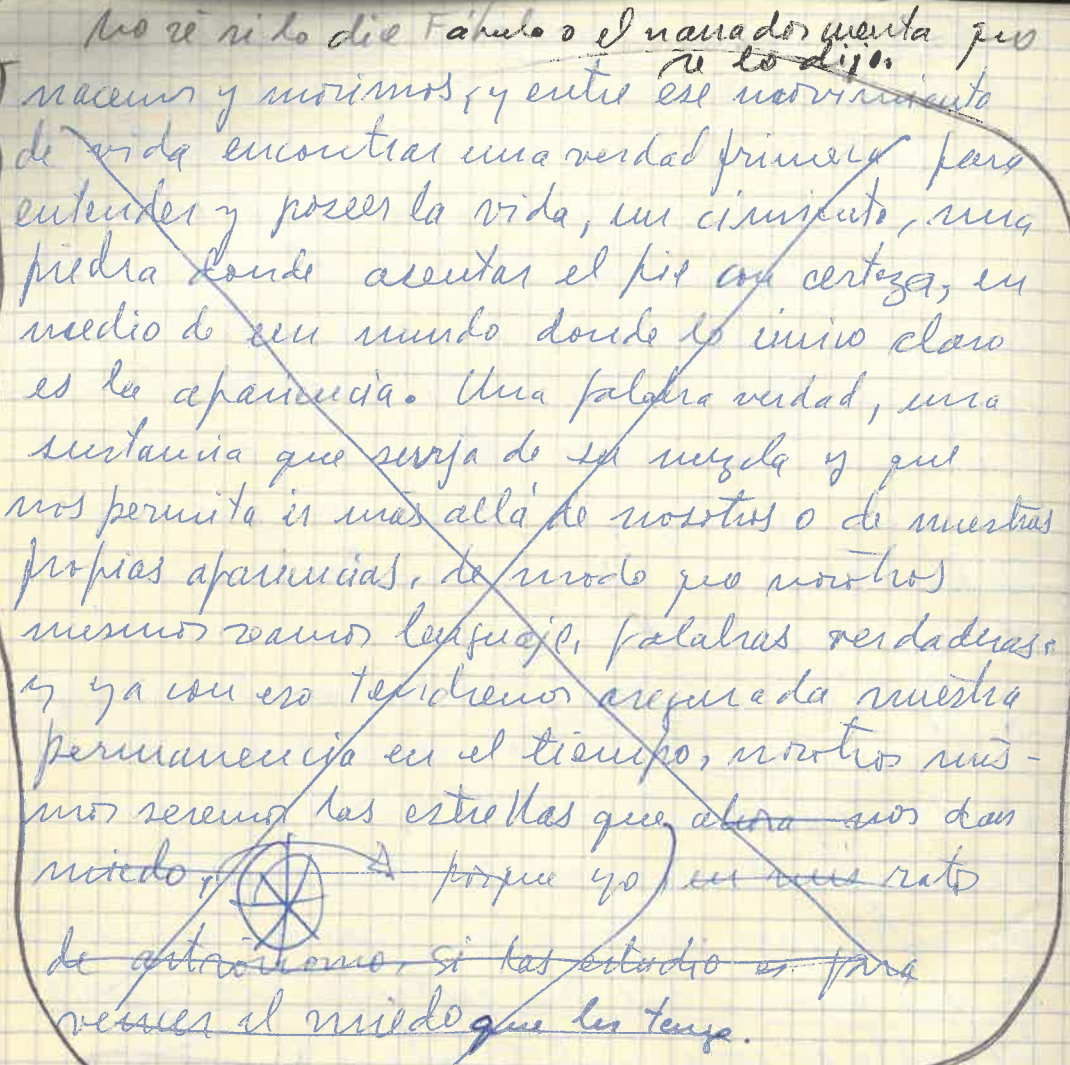 No sé si lo dice Fábulo o el narrador cuenta que
se lo dijo.
nacemos y morimos, y entre ese movimiento
de vida encontrar una verdad primera para
entender y poseer la vida, un cimiento, una
piedra donde asentar el pie con certeza, en
medio de un mundo donde lo único claro
es la apariencia. Una palabra verdad, una
sustancia que surja de su mezcla y que
nos permita ir más allá de nosotros o de nuestras
propias apariencias, de modo que nosotros
mesmos seamos lenguaje, palabras verdaderas.
y ya con eso tendremos asegurada nuestra
permanencia en el tiempo, nosotros mis-
mos seremos las estrellas que ahora nos dan
miedo, porque yo en mis ratos
de astrónomo, si las estudio es para
vencer el miedo que les tengo.